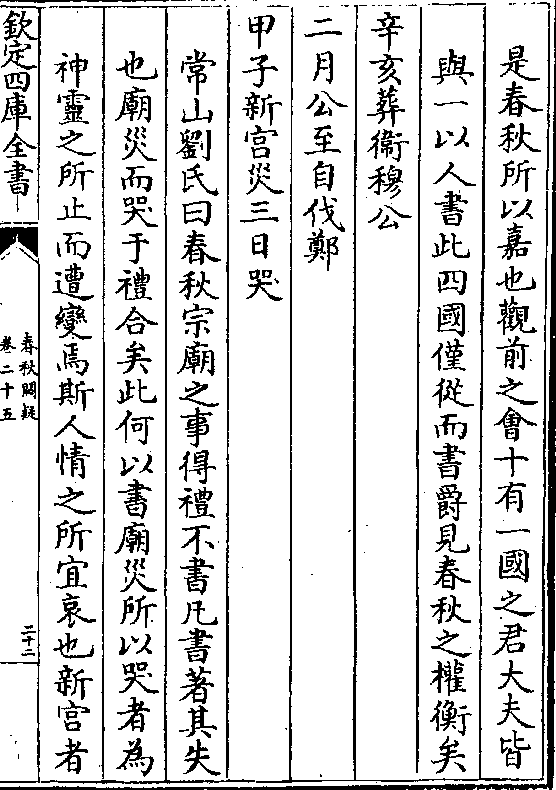 是春秋所以嘉也觀前之會十有一國之君大夫皆
與一以人書此四國僅從而書爵見春秋之權衡矣
辛亥葬衞穆公
二月公至自伐鄭
甲子新宫災三日哭
常山劉氏曰春秋宗廟之事得禮不書凡書著其失
也廟災而哭于禮合矣此何以書廟災所以哭者為
神靈之所止而遭變焉斯人情之所宜哀也新宫者
欽定四庫全書
春秋闕疑
卷二十五
二十二